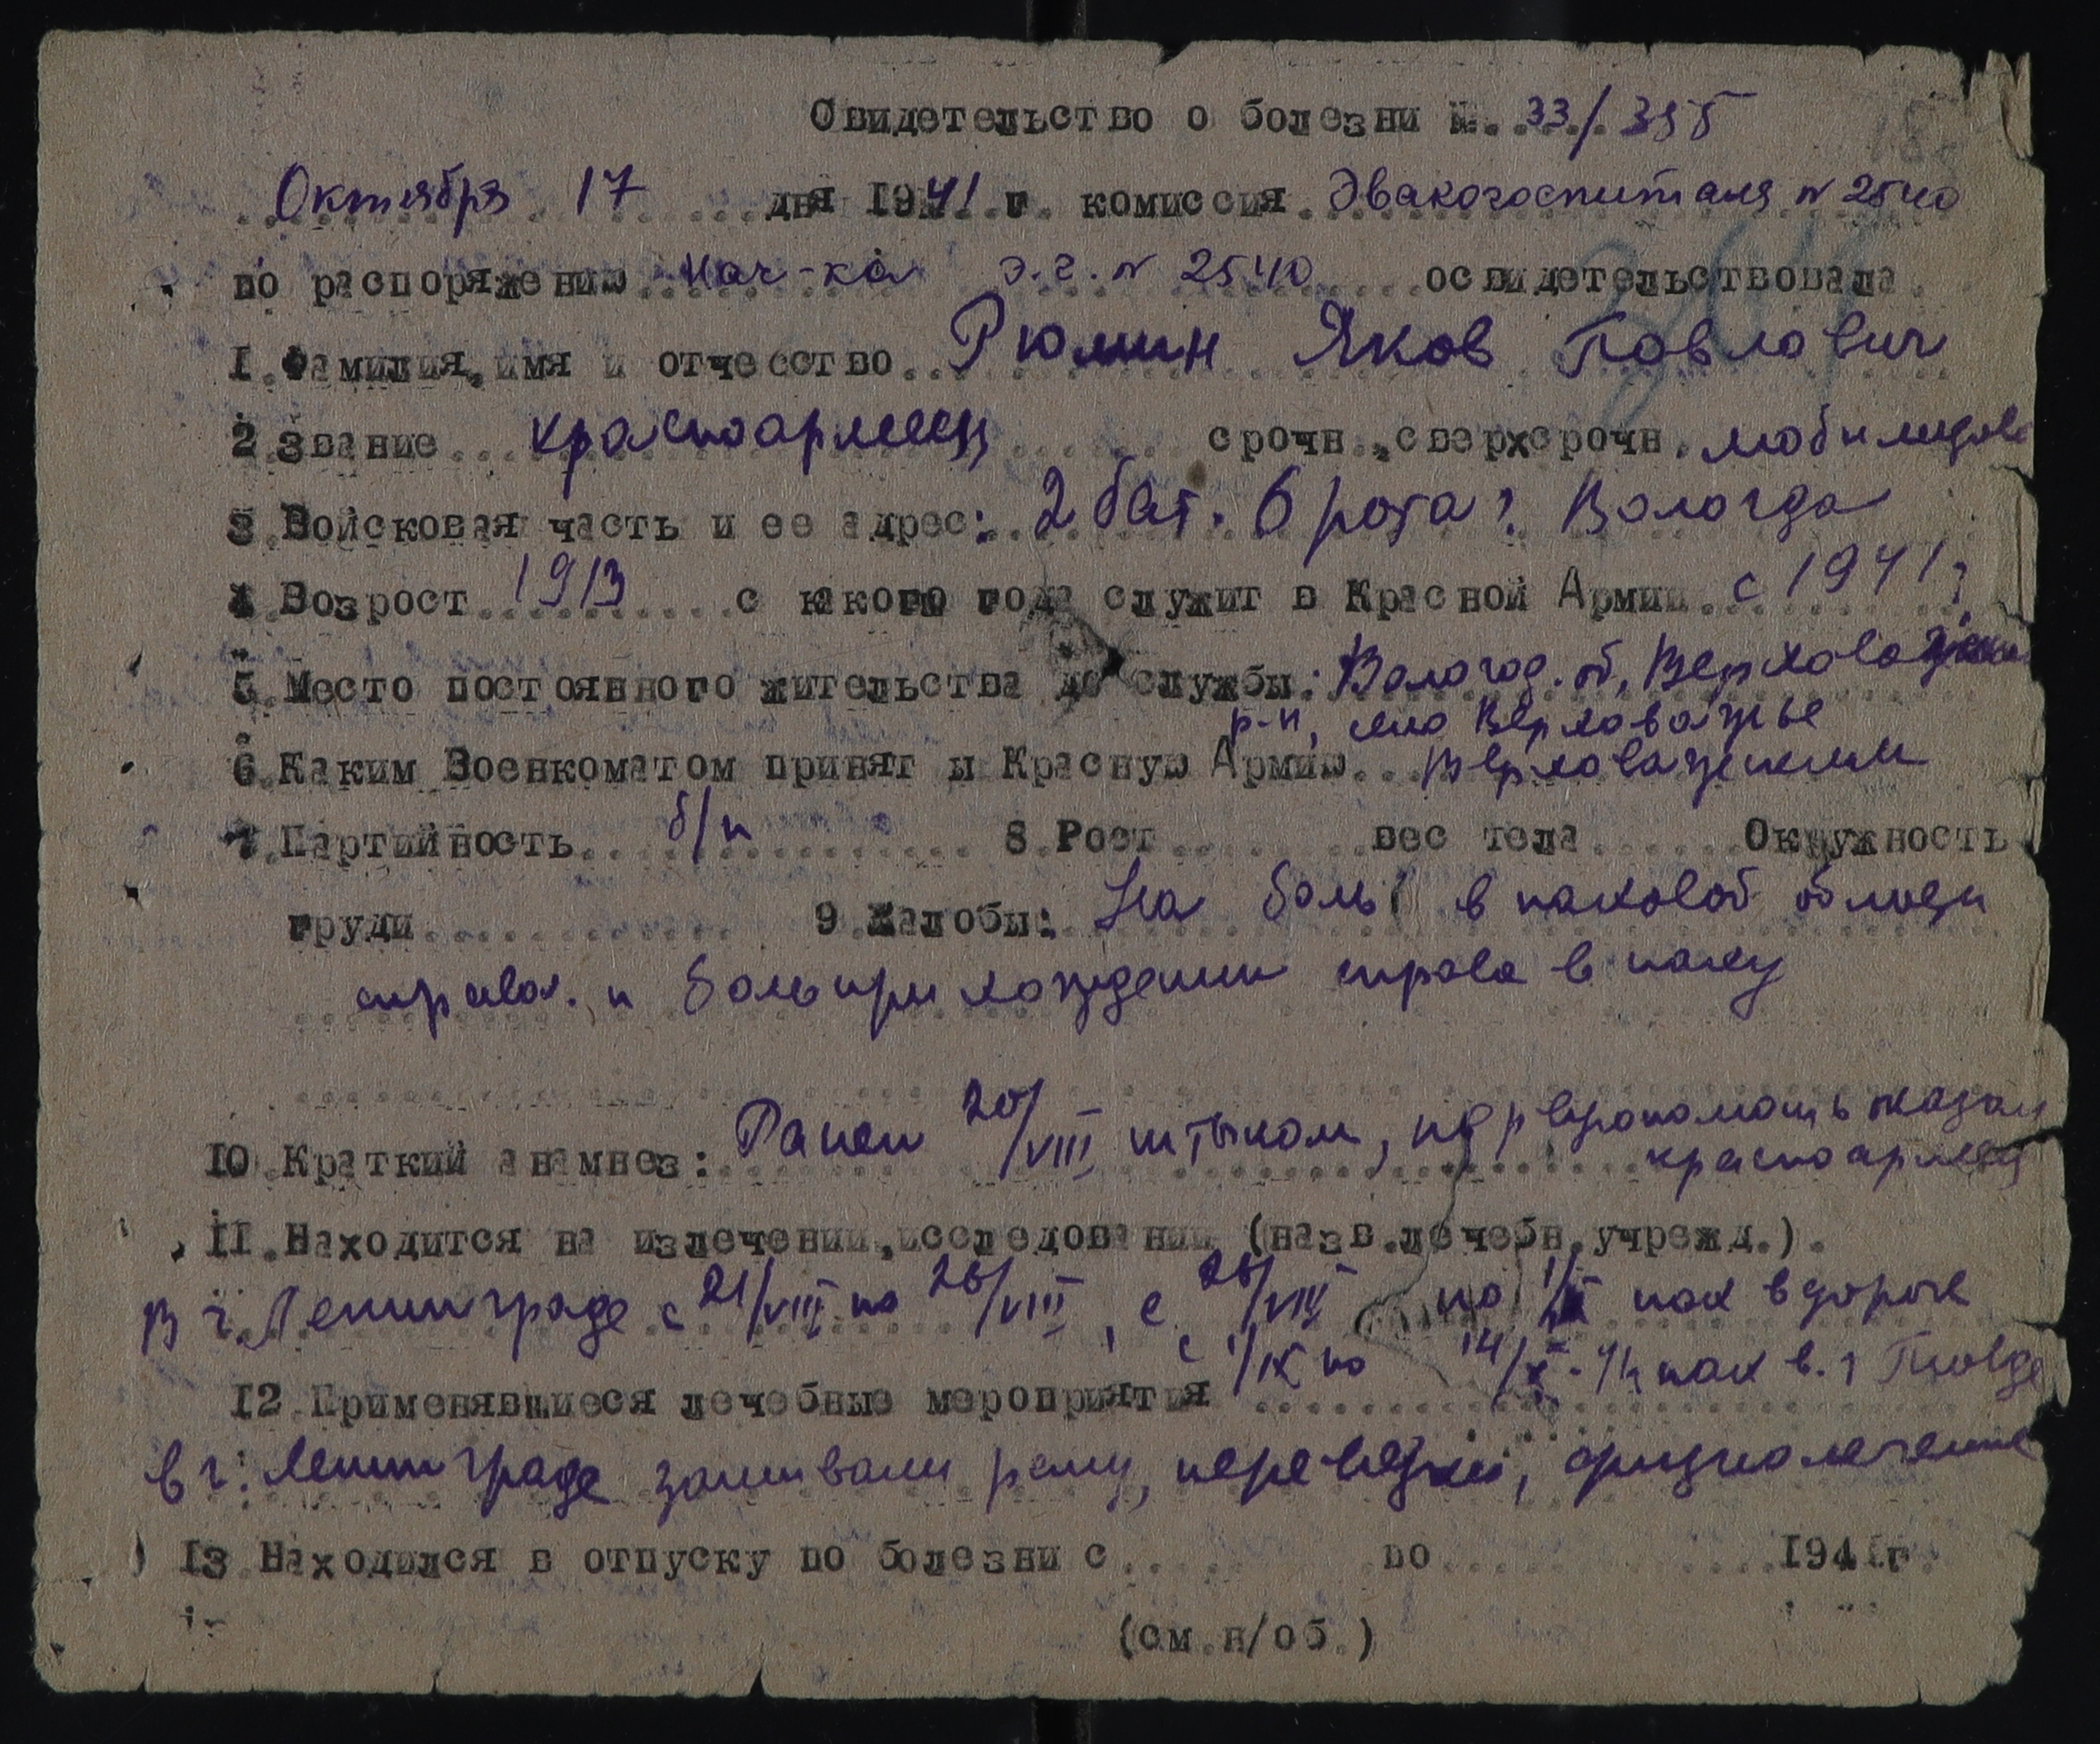 Свидетельство о болезни №. 33/395
Октября 17 дня 1941 г. комиссия Эвакогоспиталя № 2540
по распоряжению Нач-ка э.г. № 2540 освидетельствовала
1. Фамилия, имя и отчесство Рюмин Яков Павлович
2 Звание красноармеец срочн., сверхсрочн. мобилизова
3. Войсковая часть и ее адрес: 2 бат. 6 рота г. Вологда
4 Возрост 1913 с какого года служит в Красной Армии с 1941 г
5. Место постоянного жительства до службы: Вологод. об, Верховажск
р-н, село Верховажье
6. Каким Военкоматом принят в Красную Армию Верховажским
7. Партийность б/п 8 Рост вес тела Окружность
груди 9 Жалобы: На боль в паховой област
справа. и боль при хождении справа в паху
10. Краткий анамнез: Ранен 20/VIII штыком, первую помощь оказал
красноармеец
11. Находится на излечении, исследовании (назв. лечебн. учрежд.).
В г. Ленинграде с 21/VIII по 26/VIII, с 26/VIII по 1/IX нах в дороге
с 1/IX по 14/X нах в г
12. Применявшиеся лечебные мероприятия
в г. Ленинграде зашивали рану, перевязки, физиолечение
13 Находился в отпуску по болезни с по 1941г
(см. н/об.)